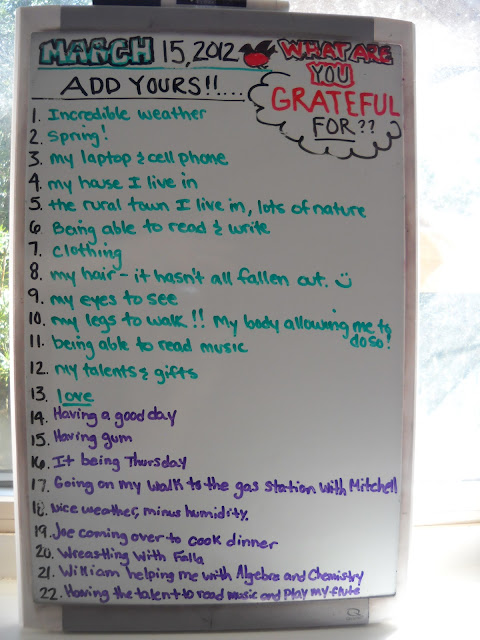 MARCH 15, 2012
WHAT ARE
YOU
GRATEFUL
FOR??
ADD YOURS!!....
1. Incredible weather
2. Spring!
3. my laptop & cell phone
4. my house I live in
5. the rural town I live in, lots of nature
6. Being able to read & write
7. Clothing
8. my hair - it hasn't all fallen out.
9. my eyes to see
10. my legs to walk!! My body allowing me to
do so!
11. being able to read music
12. my talents & gifts
13. love
14. Having a good day
15. Having gum
16. It being Thursday
17. Going on my walk to the gas station with Mitchell
18. Nice weather, minus humidity.
19. Joe coming over to cook dinner
20. Wreastling With Falla
21. William helping me with Algebra and Chemistry
22. Having the talent to read music and Play my flute